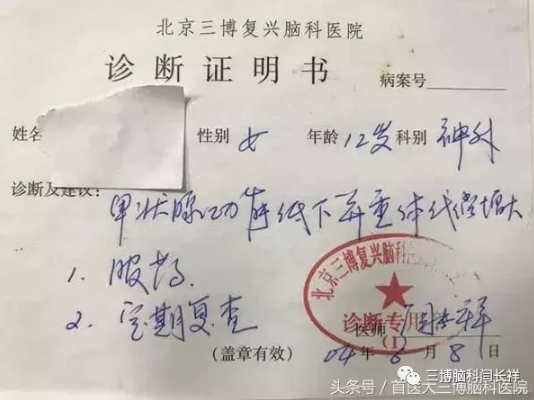 北京三博复兴脑科医院
诊断证明书
病案号
姓名 性别 女 年龄 12岁 科别 神外
诊断及建议：
甲状腺功能低下并垂体代偿增大
1. 服药
2. 定期复查
北京三博复兴脑科
诊断专用
(1)
医师
(盖章有效) 04年6月8日
三博脑科闫长祥
头条号 / 首医大三博脑科医院